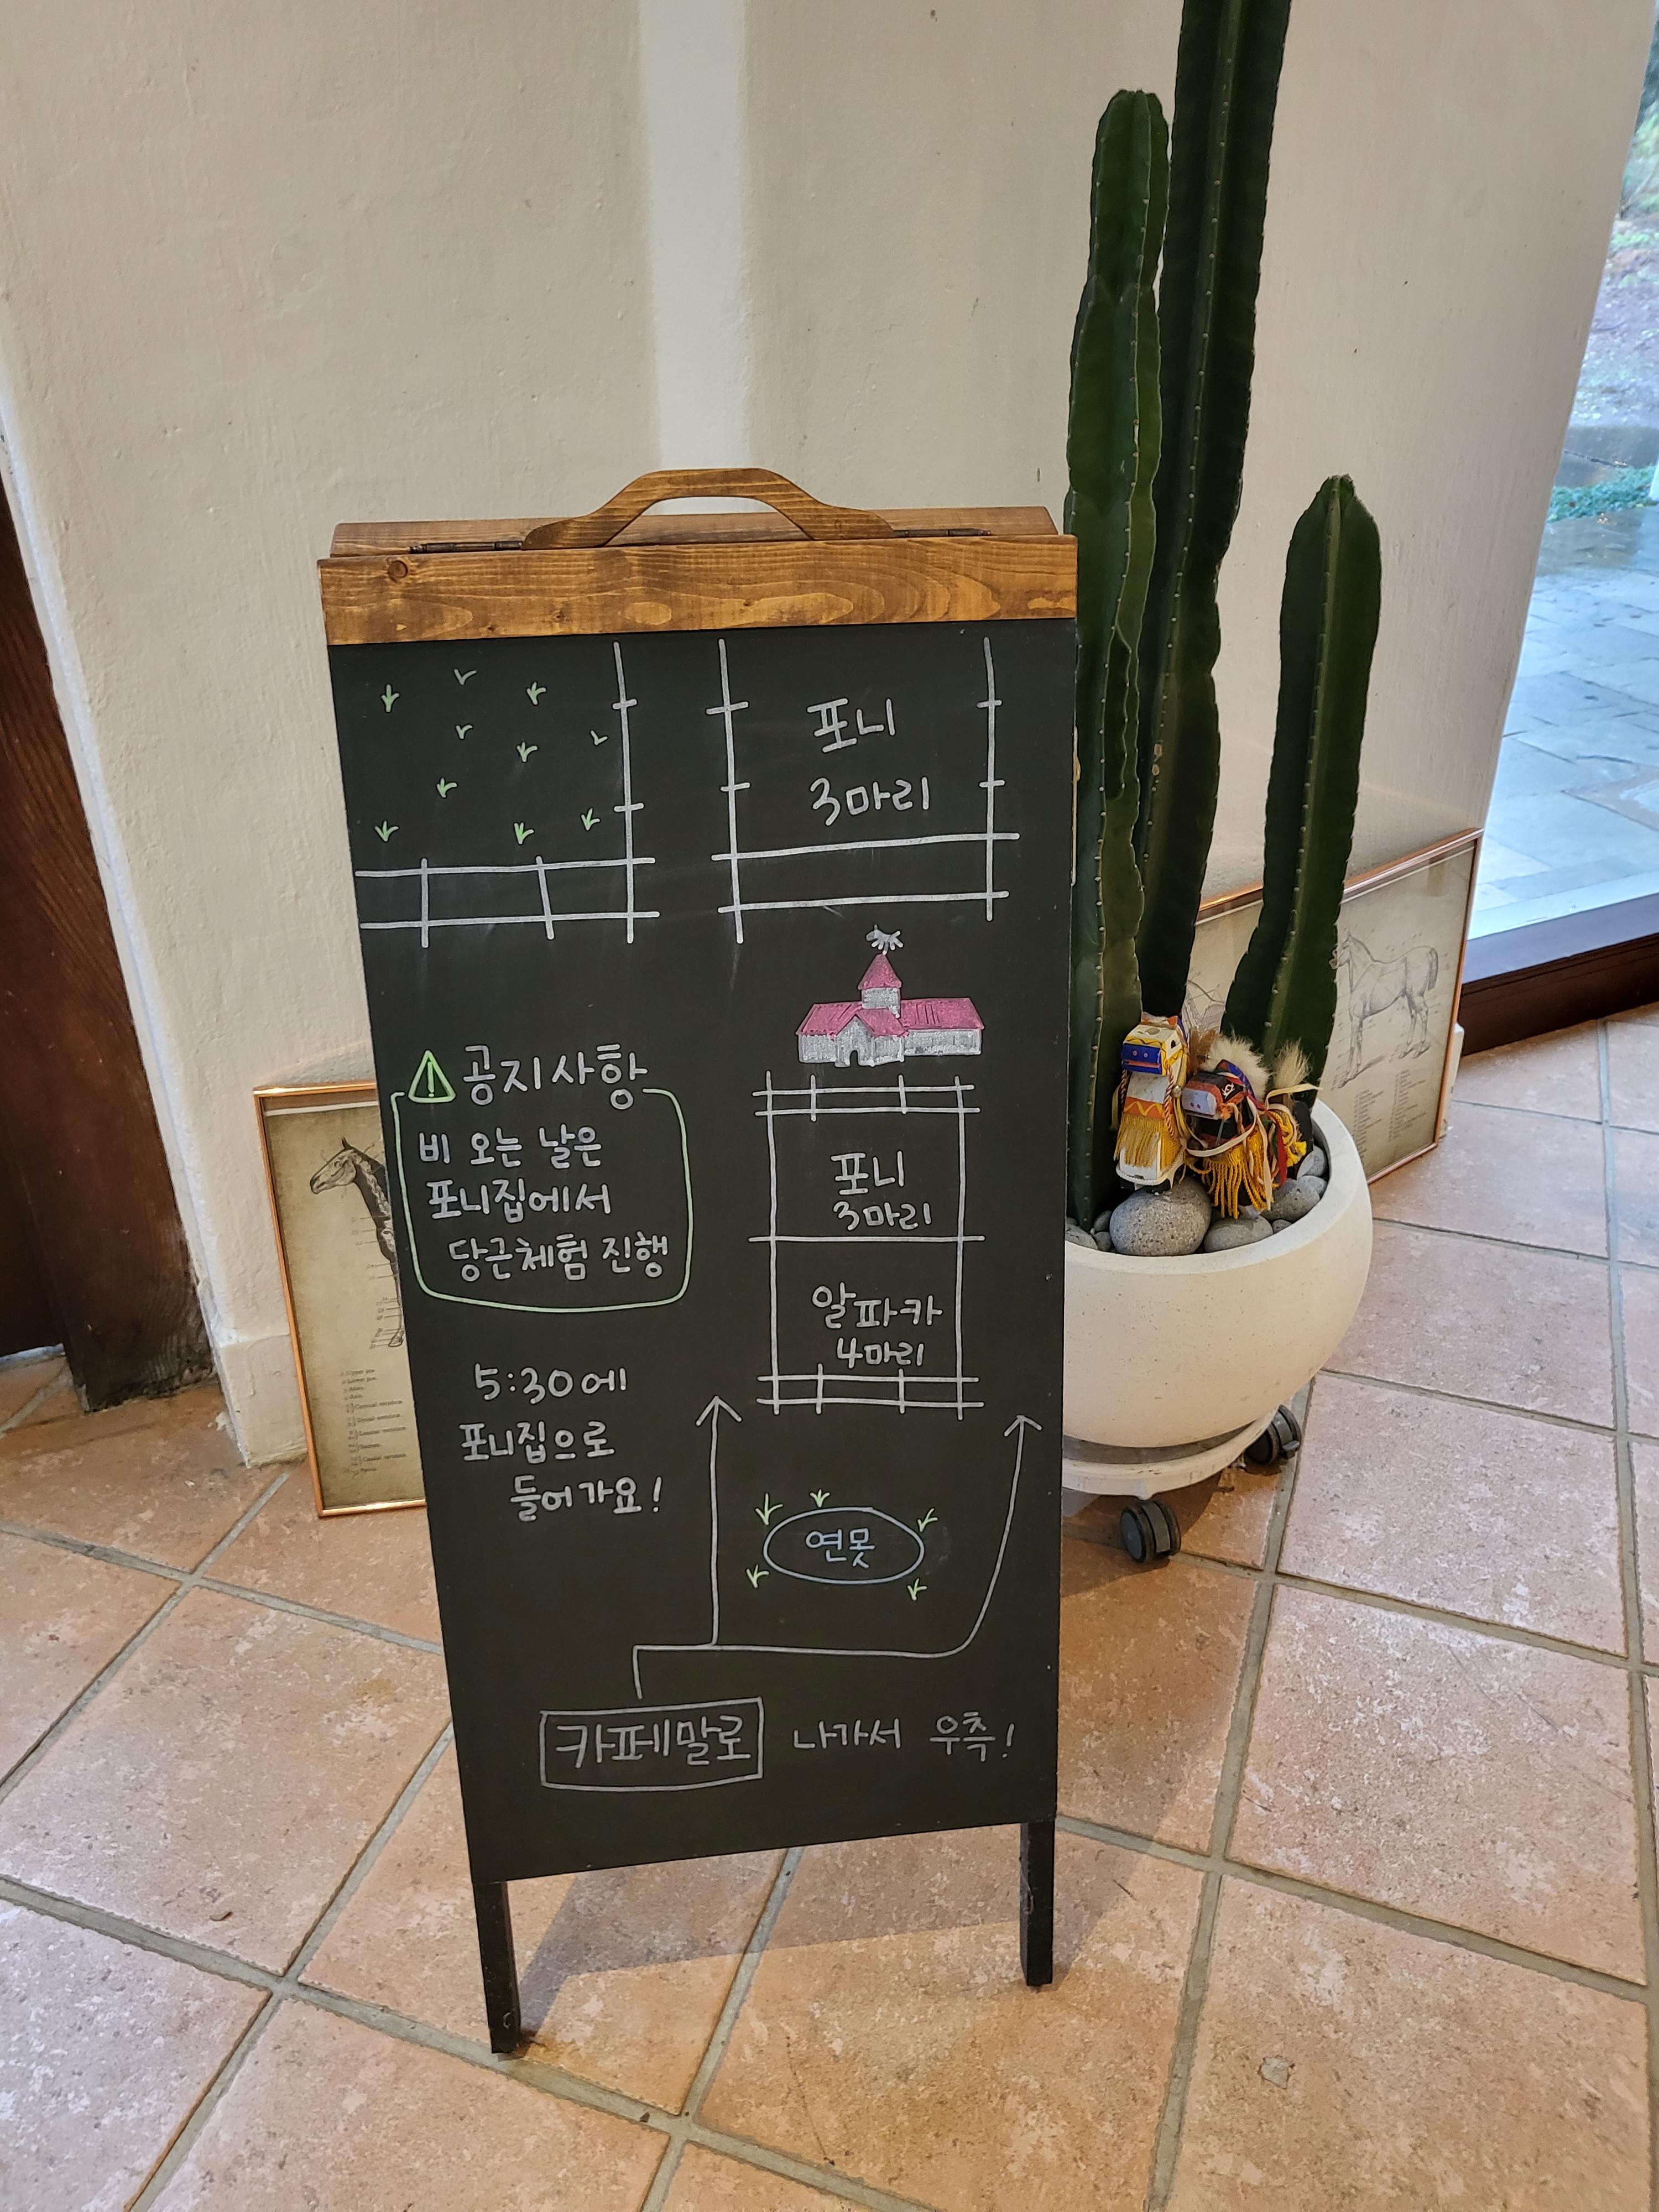 포니
3마리
공지사항
비 오는 날은
포니집에서
당근체험 진행
포니
3마리
알파카
4마리
5:30에
포니집으로
들어가요!
연못
카페말로 나가서 우측!